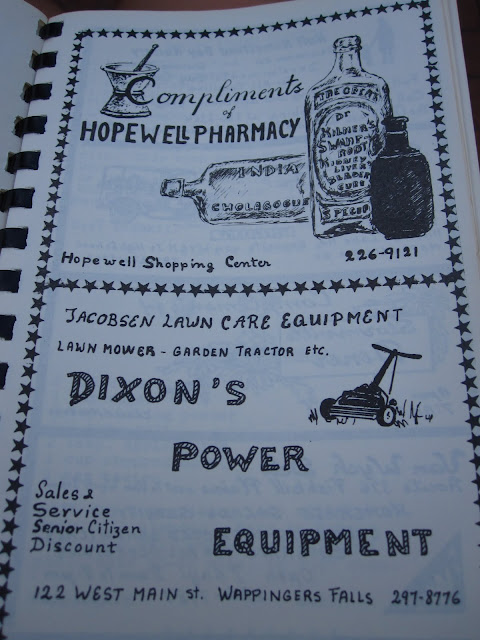 Compliments
of
HOPEWELL PHARMACY
THE GREAT
DR
KILMER'S
SWAMP-
ROOT
KIDNEY
LIVER
BLADDER
CURE
SPECIFIC
INDIA
CHOLAGOGUE
Hopewell Shopping Center 226-9121
JACOBSEN LAWN CARE EQUIPMENT
LAWN MOWER - GARDEN TRACTOR ETC.
DIXON'S
POWER
EQUIPMENT
Sales &
Service
Senior Citizen
Discount
122 WEST MAIN St. WAPPINGERS FALLS 297-8776